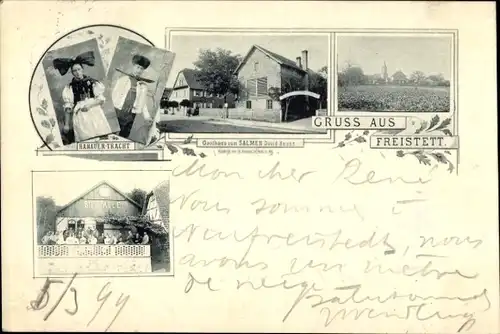 HANAUER-TRACHT
Gasthaus von SALMEN David
GRUSS AUS
FREISTETT.
Mon cher René
Nous sommes à
Neufreistedt, nous
avons un mètre
de neige
5/3 99